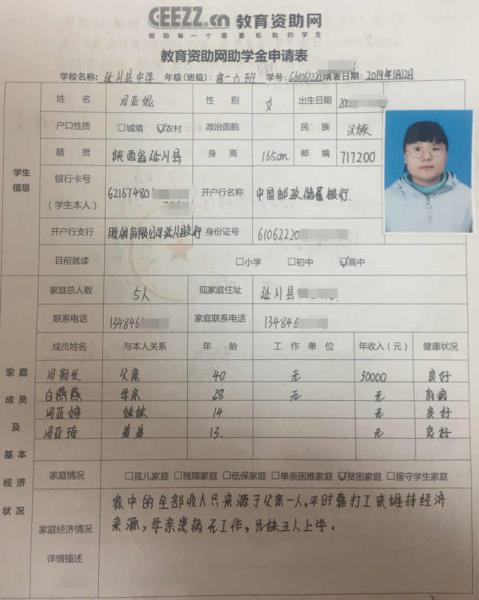 GEEZZ.cn 教育资助网
帮助每一个需要帮助的学生
教育资助网助学金申请表
学校名称: 延川县中学 年级(班级): 高一六班 学号: 61062220 填表日期: 2019年1月12日
姓名 冯亚妮 性别 女 出生日期 20
户口性质 □城填 ☑农村 政治面貌 民族 汉族
籍贯 陕西省延川县 身高 165cm 邮编 717200
学生信息
银行卡号 (学生本人) 62167480 开户行名称 中国邮政储蓄银行
开户行支行 股份有限公司延川县支行 身份证号 61062220
目前就读 □小学 □初中 ☑高中
家庭总人数 5人 现家庭住址 延川县
联系电话 134846 家庭联系电话 134846
成员姓名 与本人关系 年龄 工作单位 年收入(元) 健康状况
冯 父亲 40 无 30000 良好
白燕燕 母亲 38 无 有病
冯亚婷 妹妹 14 良好
冯亚琦 弟弟 13. 良好
家庭成员及基本经济状况
家庭情况 □孤儿家庭 □残障家庭 □低保家庭 □单亲困难家庭 ☑贫困家庭 □留守学生家庭
家庭经济情况详情描述
家中的全部收入只来源于父亲一人,平时靠打工来维持经济
来源,母亲患病无工作,兄妹三人上学。